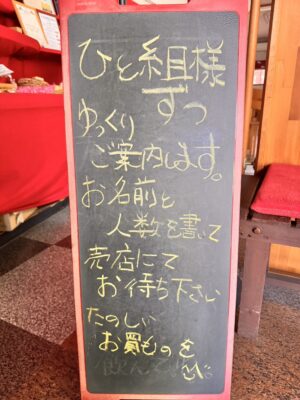 ひと組様
ずつ
ゆっくり
ご案内します。
お名前と
人数を書いて
売店にて
お待ち下さい
たのしい
お買ものを